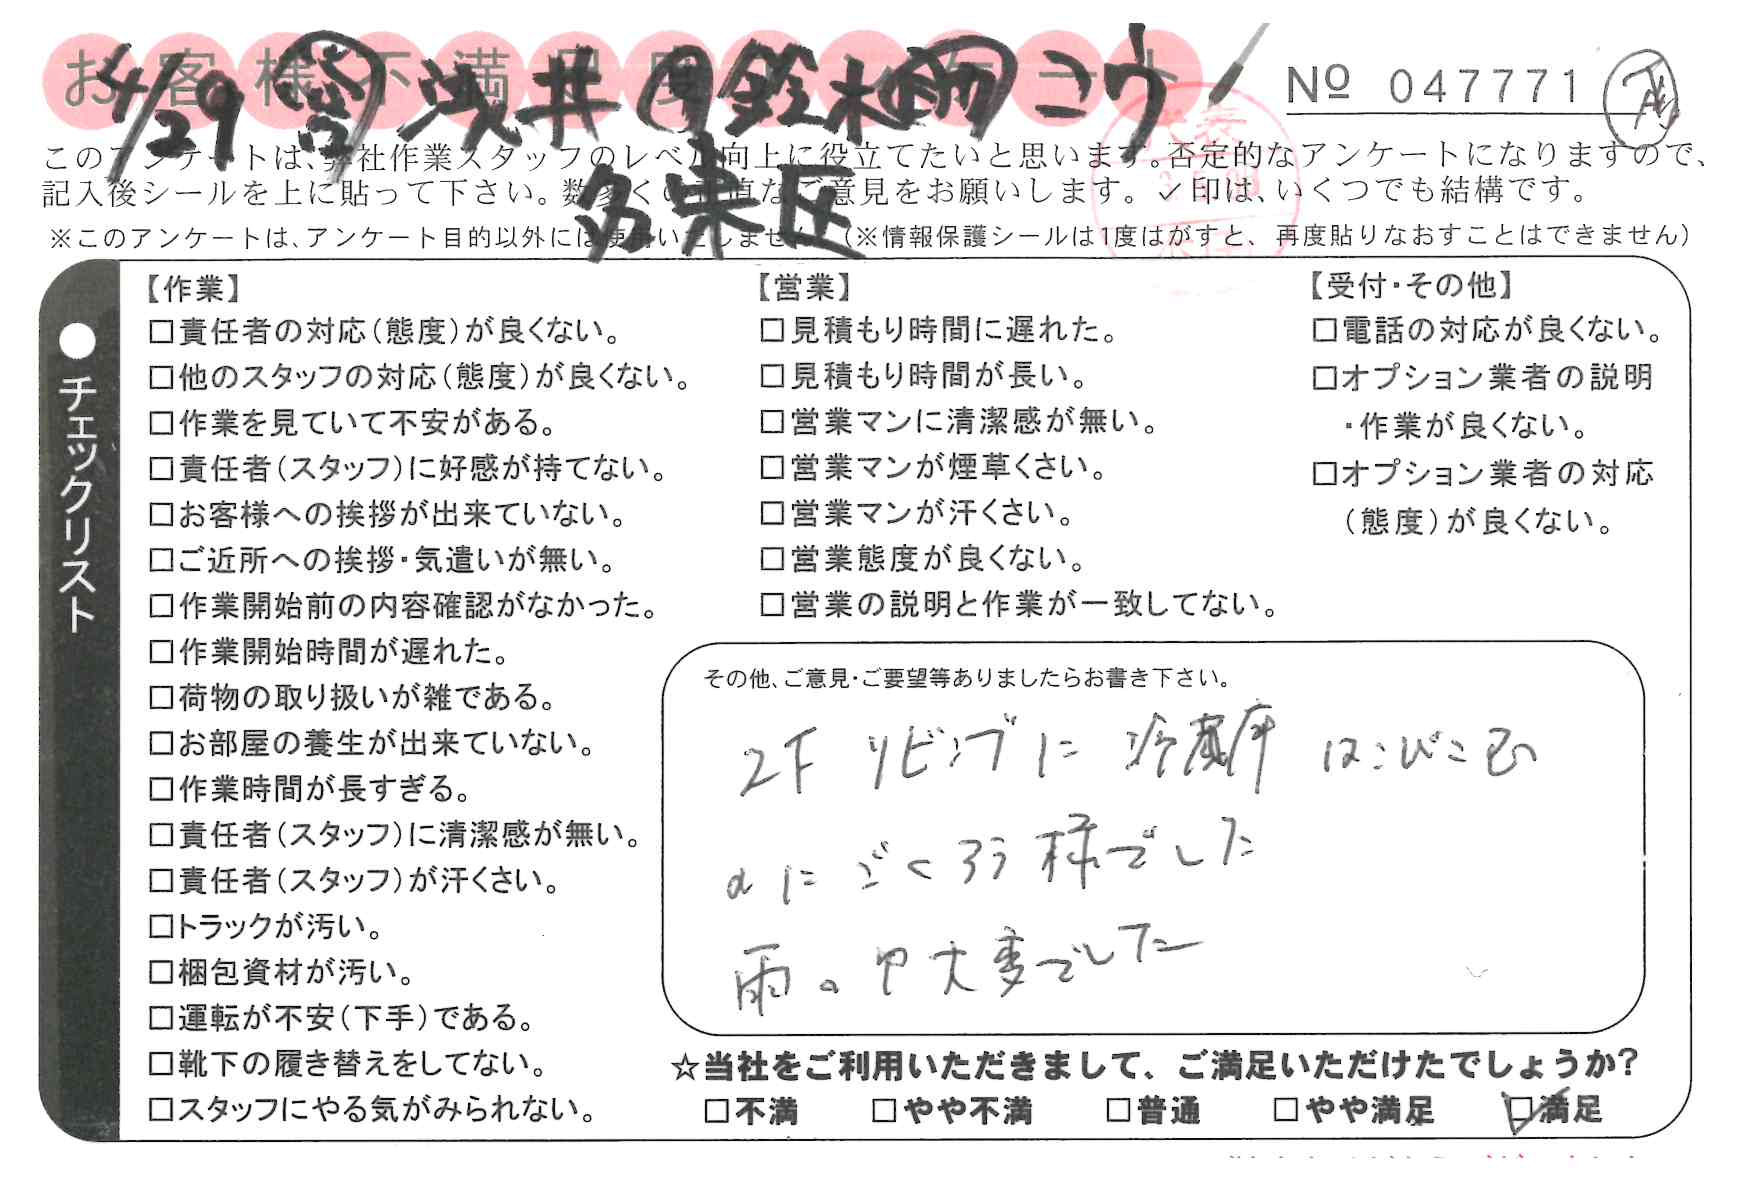 お客様不満足度アンケート
4/29 営 浅井 作 鈴木 助 コウ
多楽区
№ 047771
このアンケートは、弊社作業スタッフのレベル向上に役立てたいと思います。否定的なアンケートになりますので、
記入後シールを上に貼って下さい。数多くの正直なご意見をお願いします。✓印は、いくつでも結構です。
※このアンケートは、アンケート目的以外には使用いたしません。(※情報保護シールは1度はがすと、再度貼りなおすことはできません)
●チェックリスト
【作業】
□責任者の対応(態度)が良くない。
□他のスタッフの対応(態度)が良くない。
□作業を見ていて不安がある。
□責任者(スタッフ)に好感が持てない。
□お客様への挨拶が出来ていない。
□ご近所への挨拶・気遣いが無い。
□作業開始前の内容確認がなかった。
□作業開始時間が遅れた。
□荷物の取り扱いが雑である。
□お部屋の養生が出来ていない。
□作業時間が長すぎる。
□責任者(スタッフ)に清潔感が無い。
□責任者(スタッフ)が汗くさい。
□トラックが汚い。
□梱包資材が汚い。
□運転が不安(下手)である。
□靴下の履き替えをしてない。
□スタッフにやる気がみられない。
【営業】
□見積もり時間に遅れた。
□見積もり時間が長い。
□営業マンに清潔感が無い。
□営業マンが煙草くさい。
□営業マンが汗くさい。
□営業態度が良くない。
□営業の説明と作業が一致してない。
【受付・その他】
□電話の対応が良くない。
□オプション業者の説明
・作業が良くない。
□オプション業者の対応
(態度)が良くない。
その他、ご意見・ご要望等ありましたらお書き下さい。
2F リビングに冷蔵庫 はこびこむ
のに ごくろう様でした
雨の中大変でした
☆当社をご利用いただきまして、ご満足いただけたでしょうか?
□不満 □やや不満 □普通 □やや満足 ☑満足